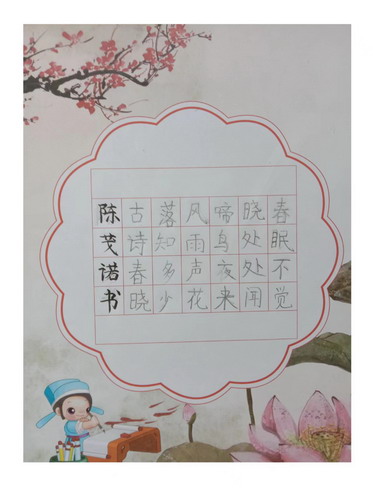 春眠不觉
晓处处闻
啼鸟夜来
风雨声花
落知多少
古诗春晓
陈茂诺书